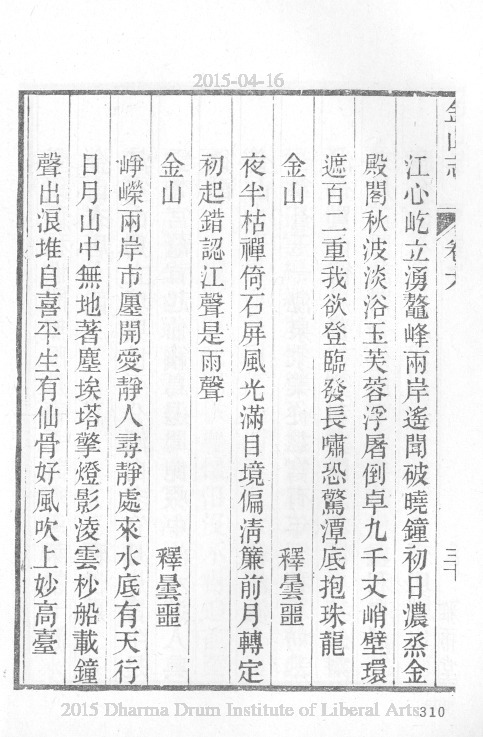 2015-04-16
金山志
卷六
三十
江心屹立湧鼇峰兩岸遙聞破曉鐘初日濃烝金
殿閣秋波淡浴玉芙蓉浮屠倒卓九千丈峭壁環
遮百二重我欲登臨發長嘯恐驚潭底抱珠龍
金山 釋曇噩
夜半枯禪倚石屏風光滿目境偏淸簾前月轉定
初起錯認江聲是雨聲
金山 釋曇噩
崢嶸兩岸市廛開愛靜人尋靜處來水底有天行
日月山中無地著塵埃塔擎燈影淩雲杪船載鐘
聲出浪堆自喜平生有仙骨好風吹上妙高臺
2015 Dharma Drum Institute of Liberal Arts
310